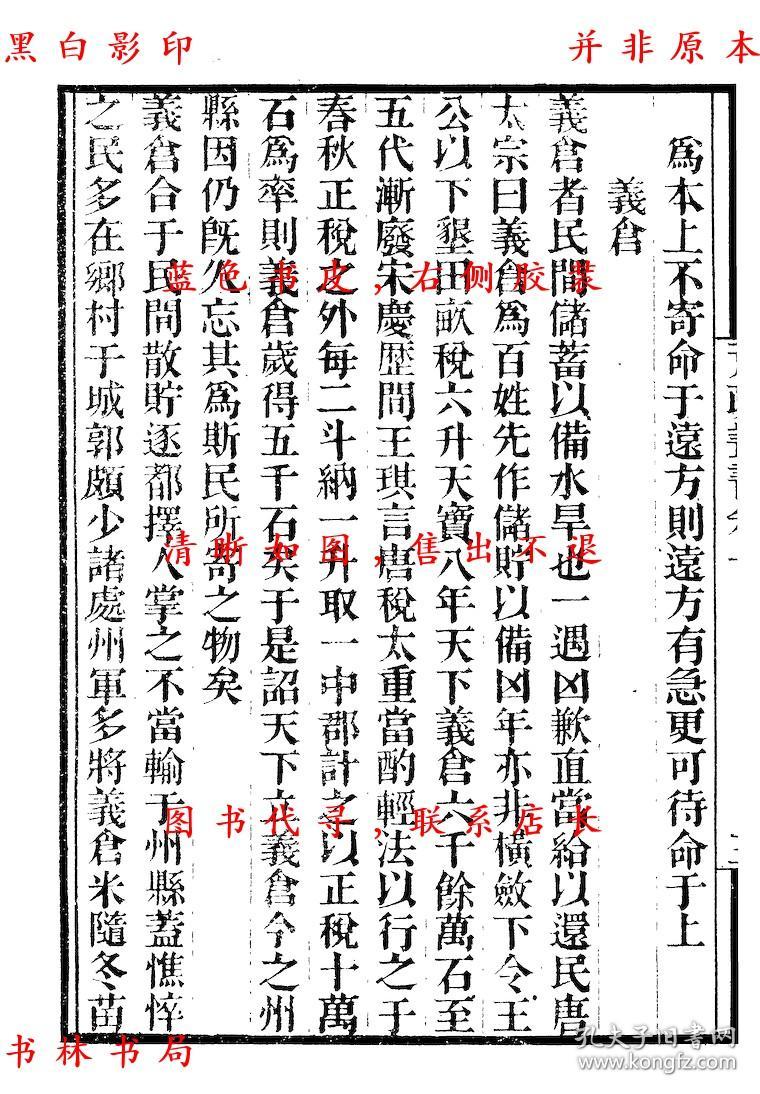 黑白影印
并非原本
爲本上不寄命于遠方則遠方有急更可待命于上
義倉
義倉者民間儲蓄以備水旱也一遇凶歉直當給以還民唐
太宗曰義倉爲百姓先作儲貯以備凶年亦非橫斂下令王
公以下墾田畝稅六升天寶八年天下義倉六千餘萬石至
五代漸廢宋慶歷間王琪言唐稅太重當酌輕法以行之于
春秋正稅之外每二斗納一升取一中郡計之以正稅十萬
石爲率則義倉歲得五千石矣于是詔天下立義倉今之州
縣因仍旣久忘其爲斯民所寄之物矣
義倉合于民間散貯逐都擇人掌之不當輸于州縣蓋憔悴
之民多在鄉村于城郭頗少諸處州軍多將義倉米隨冬苗
蓝色书皮，右侧胶装
清晰如图，售出不退
图书代寻，联系店长
书林书局
孔夫子旧书网
www.kongfz.com